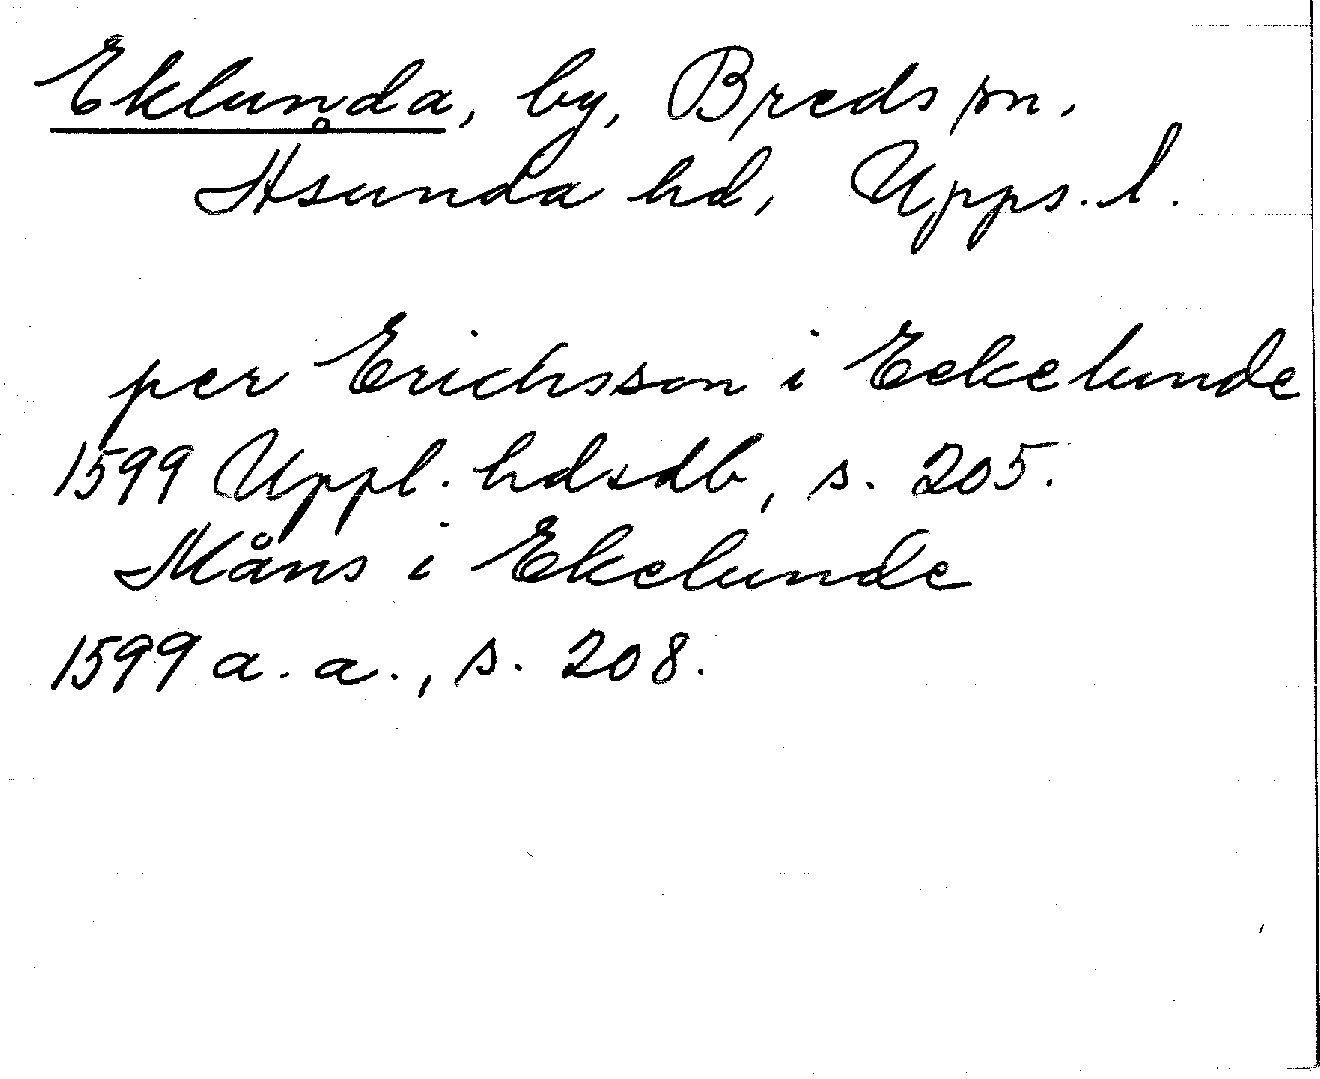 Eklunda, by, Breds sn,
Åsunda hd, Upps. l.
per Erichsson i Eekelunde
1599 Uppl. hdsdb, s. 205.
Måns i Ekelunde
1599 a. a., s. 208.